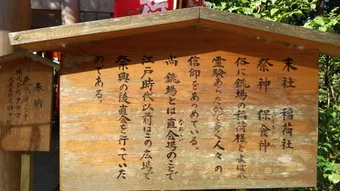 末社 稲荷社
祭神 保食神
俗に銚場の稲荷様とよばれ
霊験あらたかで多く人々の
信仰をあつめている。
尚 銚場とは直会場のことで
江戸時代以前はこの広場で
祭典の後直会を行っていた
のである。
奉納